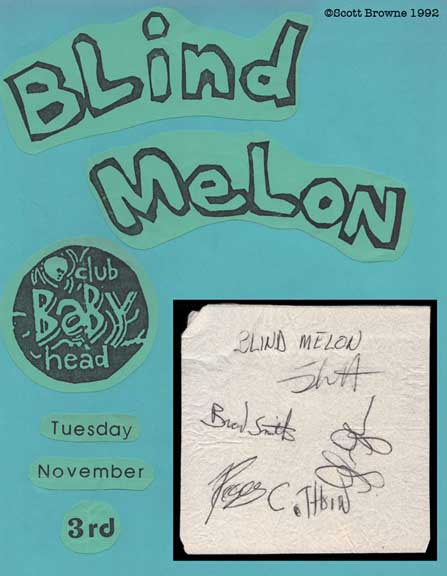 ©Scott Browne 1992
Blind
MeLoN
club
BaBY
head
Tuesday
November
3rd
BLIND MELON
Brad Smith
C. THORN